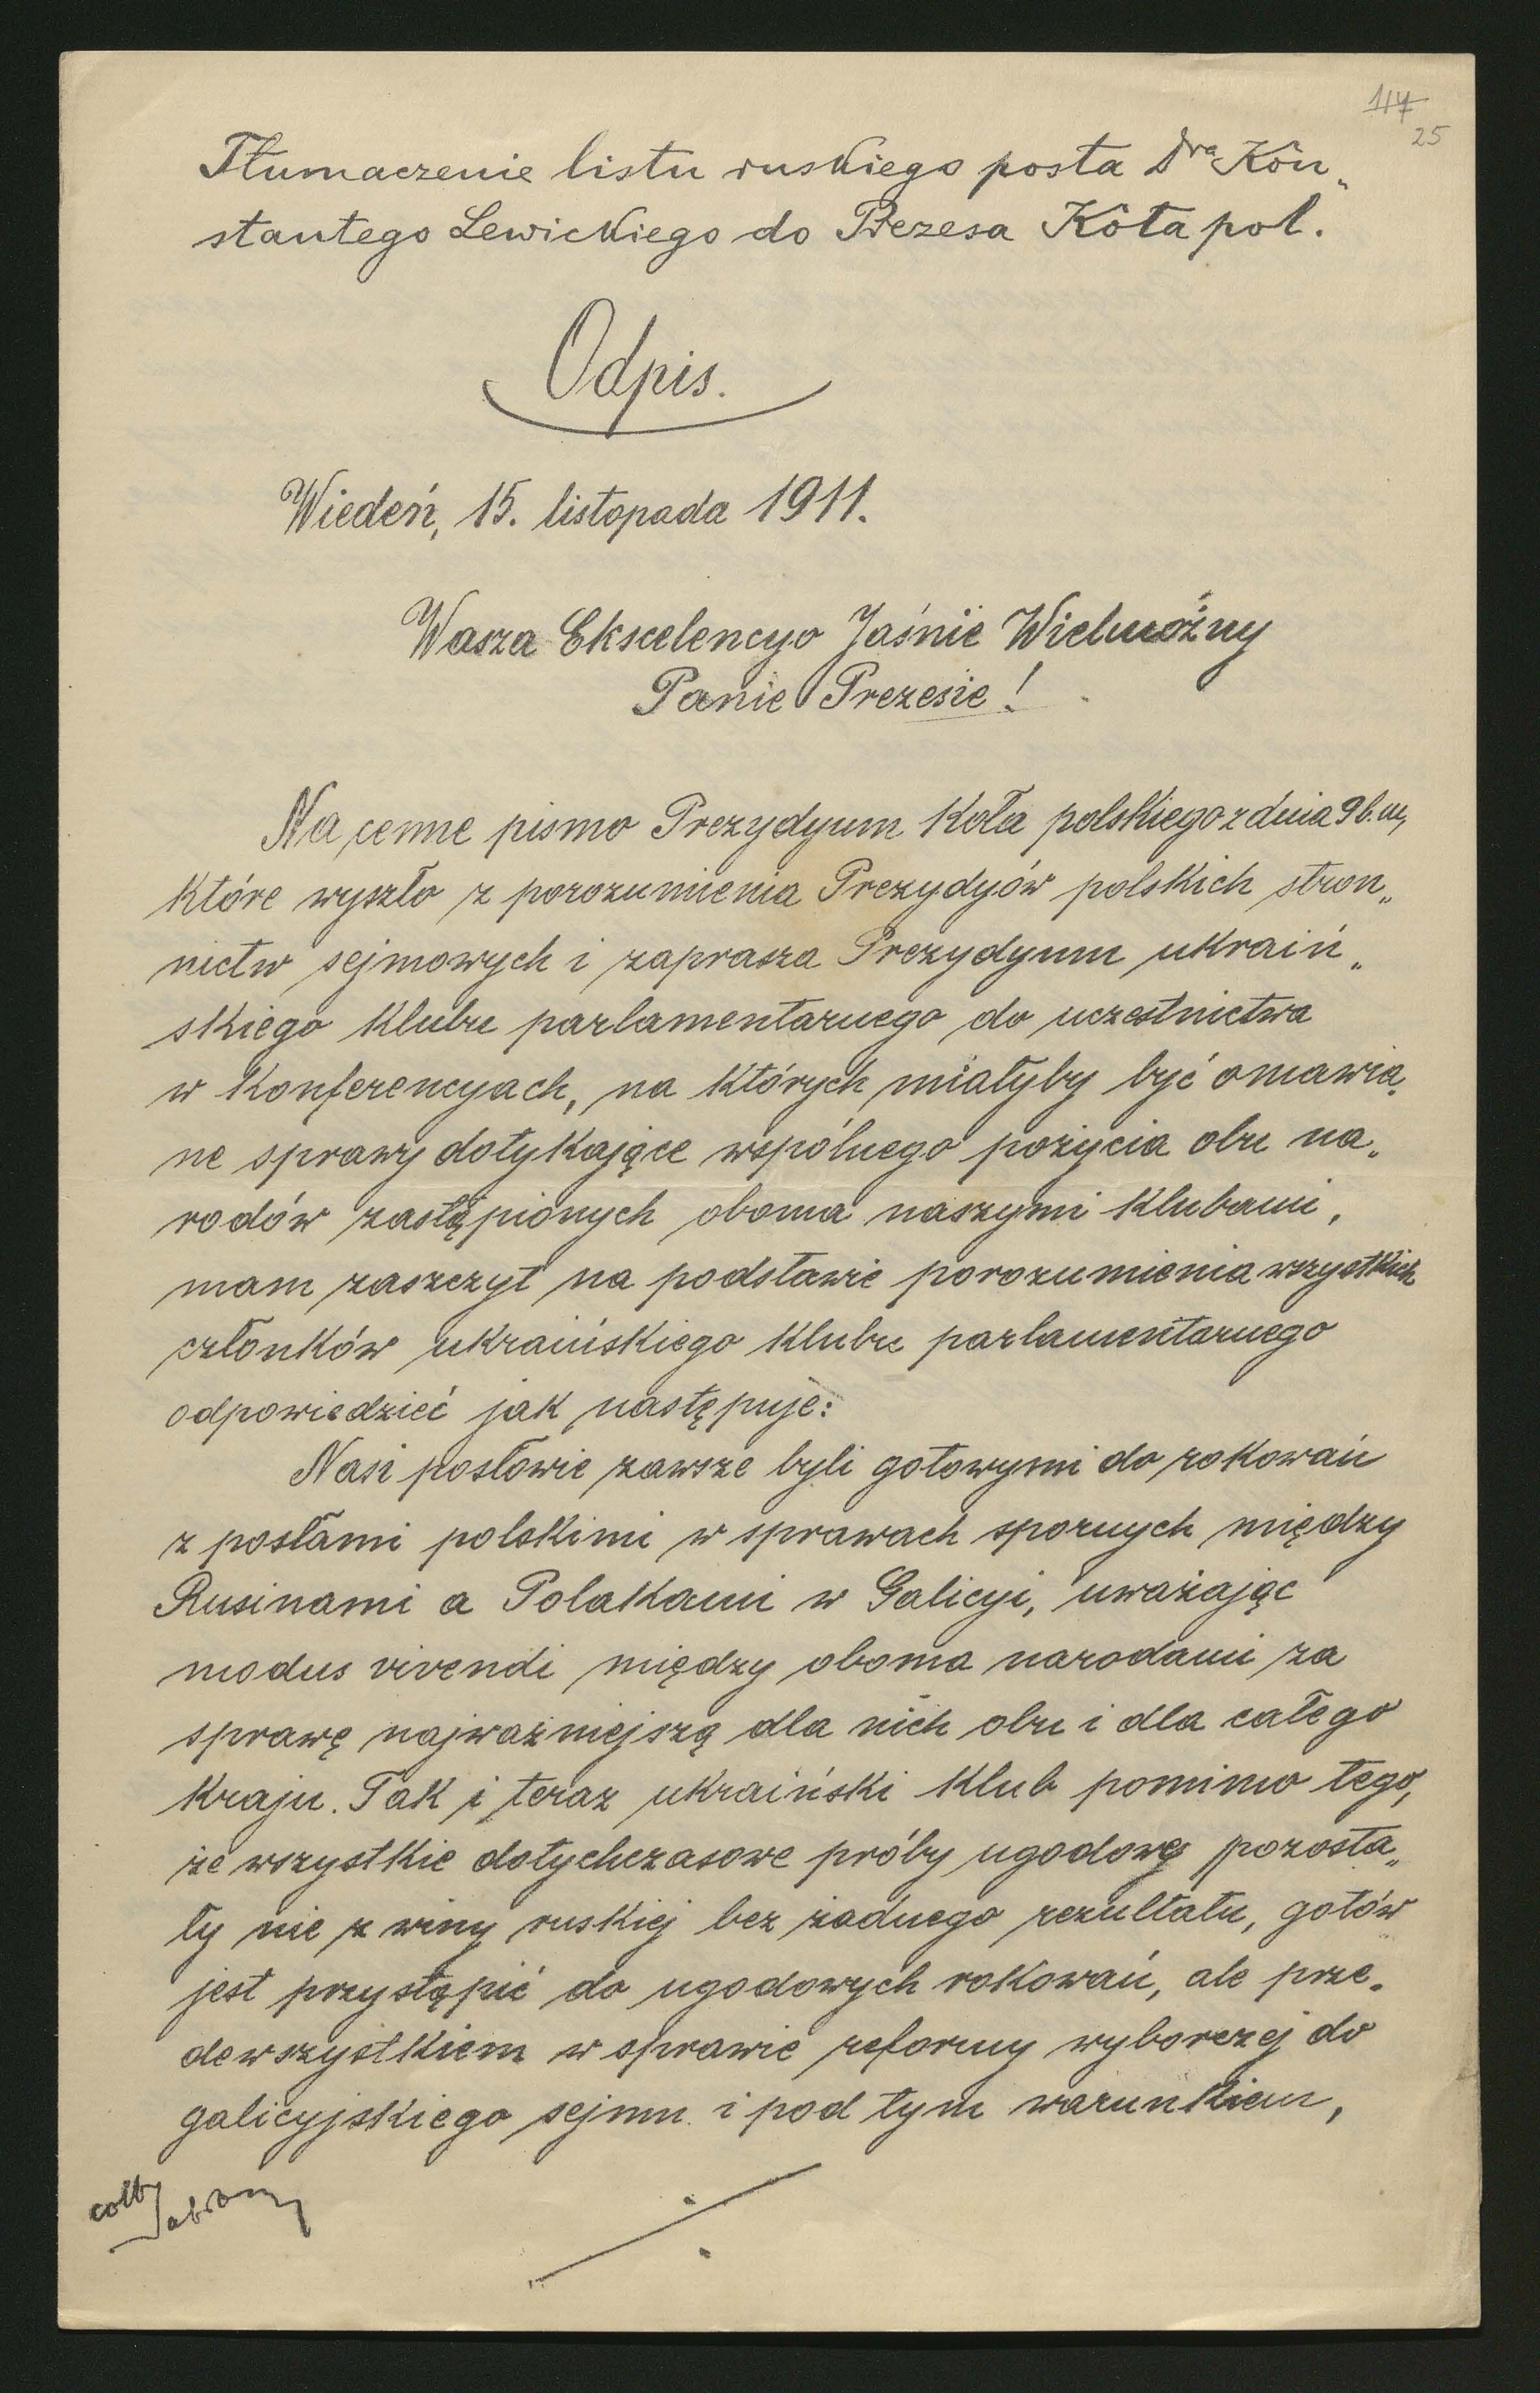 117
25
Tłumaczenie listu ruskiego posła Dra Kon„
stantego Lewickiego do Prezesa Koła pol.
Odpis.
Wiedeń, 15. listopada 1911.
Wasza Ekscelencyo Jaśnie Wielmożny
Panie Prezesie!
Na cenne pismo Prezydyum Koła polskiego z dnia 9 b. m,
które wyszło z porozumienia Prezydyów polskich stron„
nictw sejmowych i zaprasza Prezydyum ukraiń„
skiego klubu parlamentarnego do uczestnictwa
w konferencyach, na których miałyby być omawia„
ne sprawy dotykające wspólnego pożycia obu na„
rodów zastąpionych oboma naszymi klubami,
mam zaszczyt na podstawie porozumienia wszystkich
członków ukraińskiego klubu parlamentarnego
odpowiedzieć jak następuje:
Nasi posłowie zawsze byli gotowymi do rokowań
z posłami polskimi w sprawach spornych między
Rusinami a Polakami w Galicyi, uważając
modus vivendi między oboma narodami za
sprawę najważniejszą dla nich obu i dla całego
kraju. Tak i teraz ukraiński klub pomimo tego,
że wszystkie dotychczasowe próby ugodowe pozosta„
ły nie z winy ruskiej bez żadnego rezultatu, gotów
jest przystąpić do ugodowych rokowań, ale prze„
dewszystkiem w sprawie reformy wyborczej do
galicyjskiego sejmu i pod tym warunkiem,